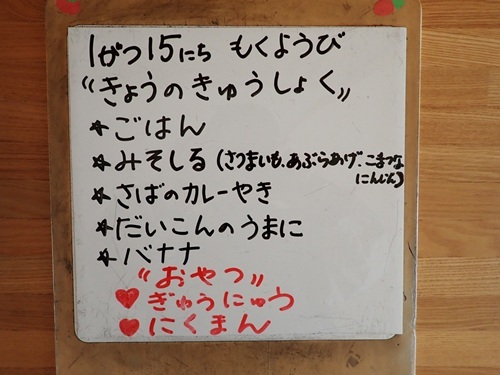 1がつ15にち もくようび
“きょうのきゅうしょく”
★ごはん
★みそしる(さつまいも、あぶらあげ、こまつな
にんじん)
★さばのカレーやき
★だいこんのうまに
★バナナ
“おやつ”
♥ぎゅうにゅう
♥にくまん